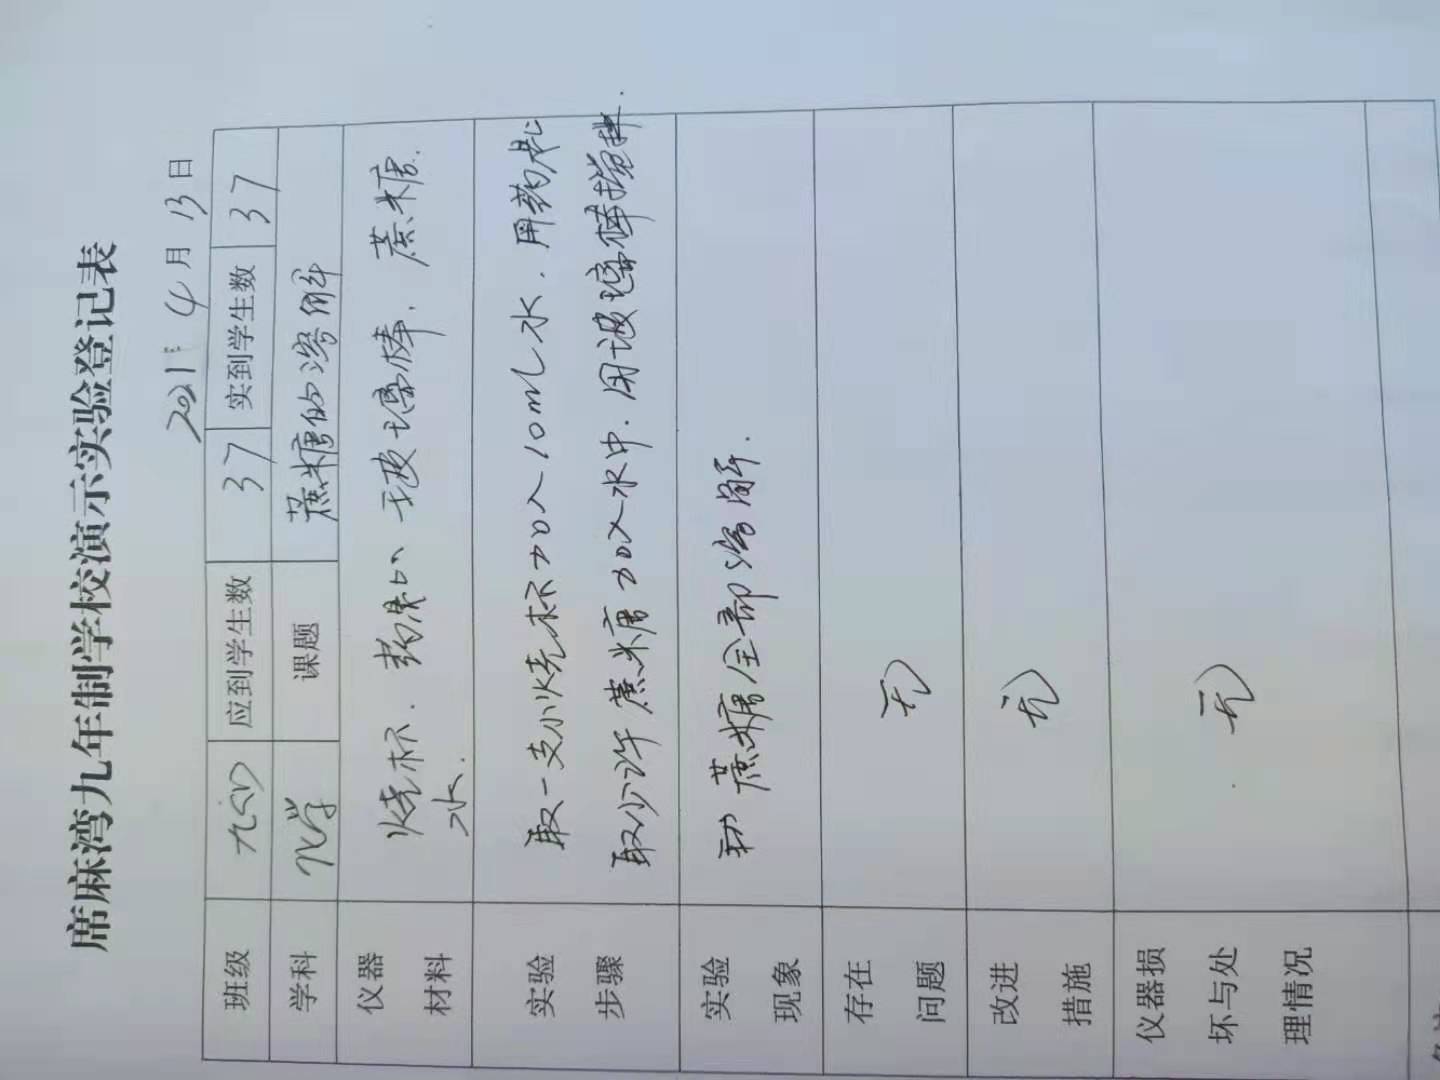 席麻湾九年制学校演示实验登记表
2021年 4 月 13 日
班级 九(2) 应到学生数 37 实到学生数 37
学科 化学 课题 蔗糖的溶解
仪器材料 烧杯. 药匙、玻璃棒. 蔗糖.
水.
实验步骤 取一支小烧杯加入10mL水. 用药匙
取少许蔗糖加入水中. 用玻璃棒搅拌.
实验现象 蔗糖全部溶解.
存在问题 无
改进措施 无
仪器损坏与处理情况 无